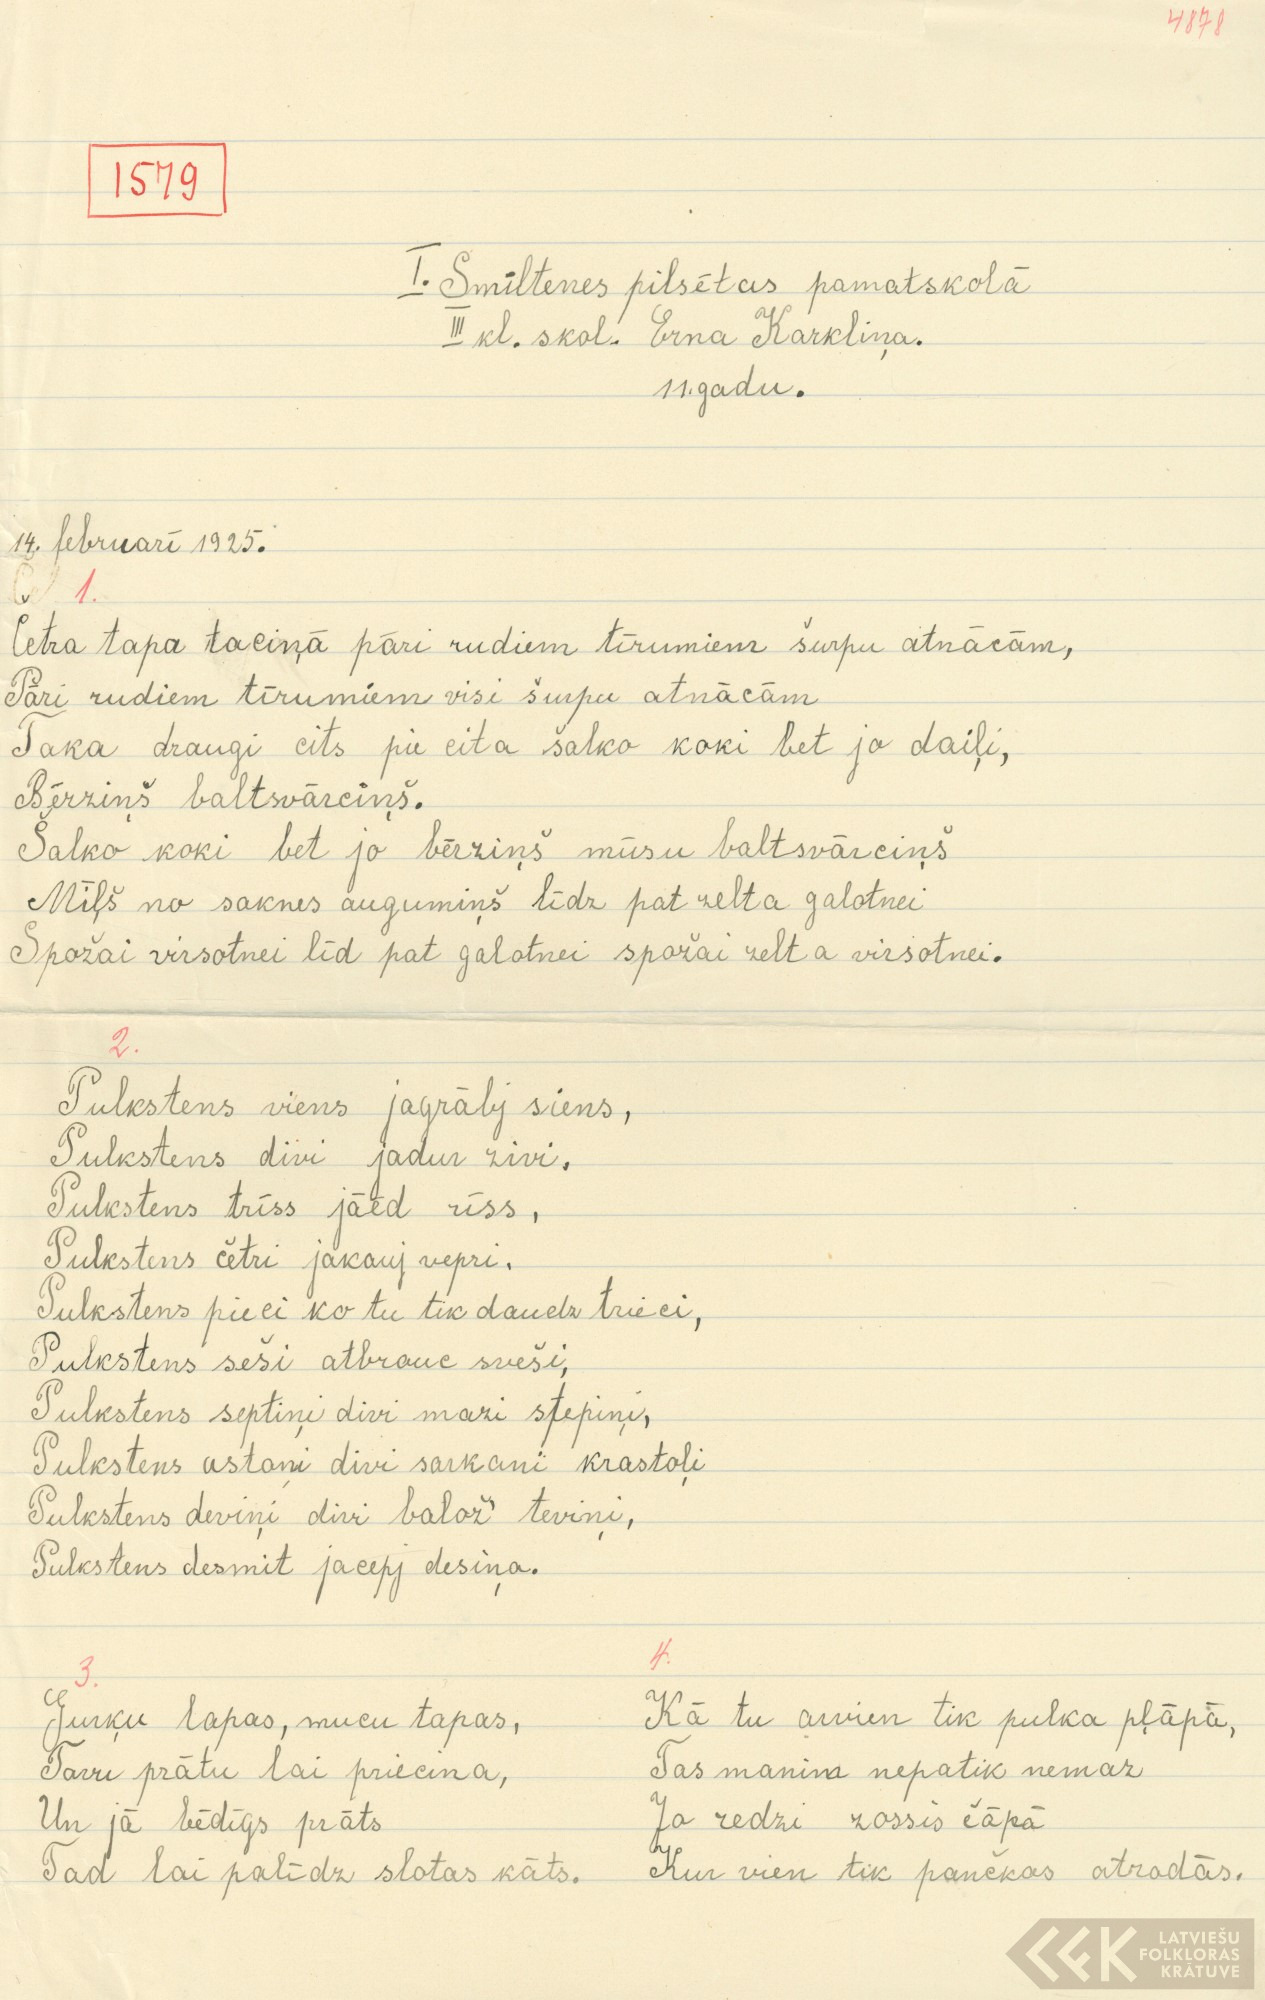 4878
1579
I. Smiltenes pilsētas pamatskolā
III kl. skol. Erna Karkliņa.
11.gadu.
14. februarī 1925.
1.
Četra tapa taciņā pāri rudiem tīrumiem šurpu atnācām,
Pāri rudiem tīrumiem visi šurpu atnācām
Taka draugi cits pie cita šalko koki bet jo daiļi,
Bērziņš baltsvārciņš.
Šalko koki bet jo bērziņš mūsu baltsvārciņš
Mīļš no saknes augumiņš līdz pat zelta galotnei
Spožai virsotnei līd pat galotnei spožai zelta virsotnei.
2.
Pulkstens viens jagrābj siens,
Pulkstens divi jadur zivi.
Pulkstens trīss jāēd rīss,
Pulkstens četri jakauj vepri.
Pulkstens pieci ko tu tik daudz trieci,
Pulkstens seši atbrauc sveši,
Pulkstens septiņi divi mazi stepiņi,
Pulkstens astoņi divi sarkani krastoļi
Pulkstens deviņi divi balož teviņi,
Pulkstens desmit jacepj desiņa.
3.
Gurķu lapas, mucu tapas,
Tavu prātu lai priecina,
Un jā bēdīgs prāts
Tad lai palīdz slotas kāts.
4.
Kā tu arvien tik pulka pļāpā,
Tas manim nepatik nemaz
Ja redzi zossis čāpā
Kur vien tik pančkas atrodās.
LATVIEŠU
FOLKLORAS
KRĀTUVE